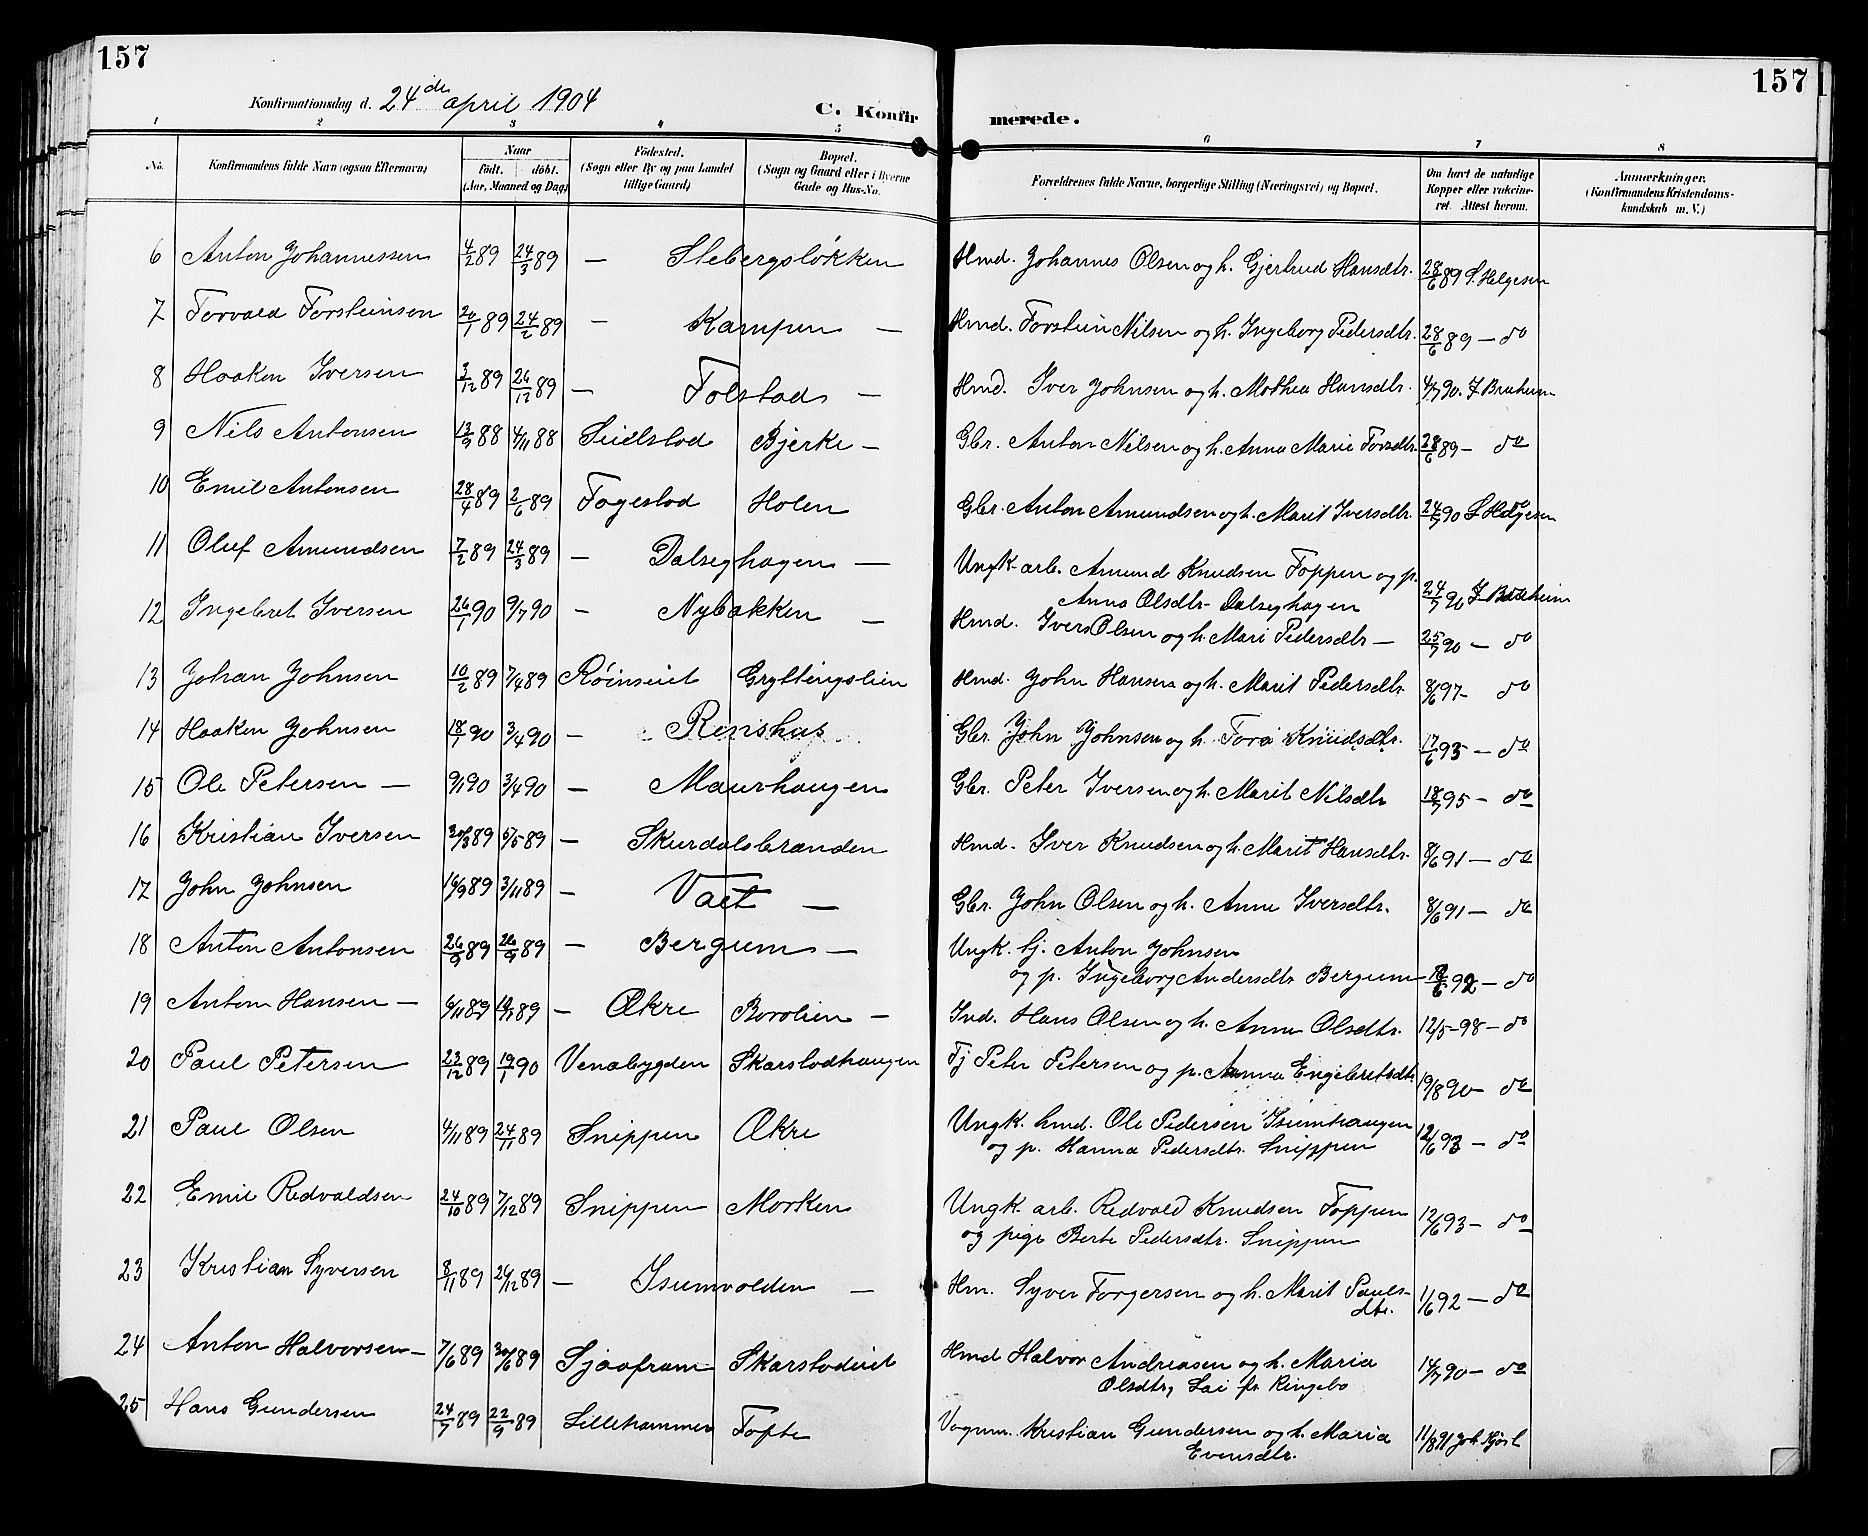 157
157
Konfirmationsdag d. 24de april 1904
C. Konfirmerede.
1 2 3 4 5 6 7 8
No.
Konfirmandens fulde Navn (ogsaa Efternavn)
Naar
født. døbt.
(Aar, Maaned og Dag)
Fødested.
(Sogn eller By og paa Landet
tillige Gaard)
Bopæl.
(Sogn og Gaard eller i Byerne
Gade og Hus-No.
Forældrenes fulde Navne, borgerlige Stilling (Næringsvei) og Bopæl.
Om havt de naturlige
Kopper eller vakcine-
ret. Attest herom.
Anmærkninger.
(Konfirmandens Kristendoms-
kundskab m. V.)
6 Anton Johannessen 4/2 89 24/3 89 — Slebergsløkken Hmd. Johannes Olsen og h. Gjertrud Hansdtr. 28/6 89 S. Helgesen
7 Torvald Torsteinsen 20/1 89 24/2 89 — Kampen — Hmd. Torstein Nilsen og h. Ingeborg Pedersdtr. 28/6 89 — do
8 Haaken Iversen 3/12 89 26/12 89 — Tolstad — Hmd. Iver Johnsen og h. Mathea Hansdtr. 4/7 90. J. Bræheim
9 Nils Antonsen 13/9 88 4/11 88 Sulstad Bjerke — Gbr. Anton Nilsen og h. Anna Marie Torsdtr. 28/6 89 — do
10 Emil Antonsen 28/4 89 2/6 89 Fogestad Holen Gbr. Anton Amundsen og h. Marit Iversdtr. 24/7 90 S Helgesen
11 Oluf Amundsen 7/2 89 24/3 89 — Dalseghagen — Ungk. arb. Amund Knudsen Foppen og p.
Anna Olsdtr. Dalseghagen 24/7 90 J. Bræheim
12 Ingebret Iversen 26/1 90 9/7 90 — Nybakken — Hmd. Iver Olsen og h. Mari Pedersdtr — 25/7 90 — do
13 Johan Johnsen 10/2 89 7/4 89 Røinseiet Gryttingslien Hmd. John Hansen og h. Marit Pedersdtr. 8/6 97 — do
14 Haaken Johnsen 18/1 90 3/4 90 — Renshus Gbr. John Johnsen og h. Tora Knudsdtr. 17/6 93 — do
15 Ole Petersen — 9/1 90 3/4 90 — Maurhaugen Gbr. Peter Iversen og h. Marit Nilsdtr 18/7 95 — do
16 Kristian Iversen 30/3 89 5/5 89 — Skurdalsbranden Hmd. Iver Knudsen og h. Marit Hansdtr. 8/6 91 — do
17 John Johnsen 16/9 89 3/11 89 — Vaet — Gbr. John Olsen og h. Anne Iversdtr. 8/6 91 — do
18 Anton Antonsen 26/9 89 26/9 89 — Bergum — Ungk. tj. Anton Johnsen
og p. Ingeborg Andersdtr Bergum 18/6 92 — do
19 Anton Hansen — 6/11 89 89 — Økre Borolien — Ind. Hans Olsen og h. Anne Olsdtr. 12/5 98 — do
20 Paul Petersen 23/12 89 19/1 90 Venabygden Skarstadhaugen Tj Peter Petersen og p. Anna Engebretsdtr. 19/8 90 — do
21 Paul Olsen 4/11 89 24/11 89 Snippen Økre Ungk. hmd. Ole Pedersen Isumhaugen
og p. Hanna Pedersdtr. Snippen 12/6 93 — do
22 Emil Redvaldsen 24/10 89 7/12 89 Snippen Morken Ungk. arb. Redvald Knudsen Foppen
og pige Berte Pedersdtr. Snippen 12/6 93 — do
23 Kristian Syversen 8/11 89 26/12 89 — Isumvolden — Hm. Syver Torgersen og h. Marit Pauls-
dtr. 1/6 92 — do
24 Anton Halvorsen — 7/6 89 30/6 89 Sjoafram Skarstadeiet Hmd Halvor Andreasen og h. Maria
Olsdtr, Lai pr Ringebo 14/7 90 — do
25 Hans Gundersen 24/7 89 22/9 89 Lillehammer Tofte Vognm. Kristian Gundersen og h. Maria
Evensdtr. 11/8 91 Joh. Hjort